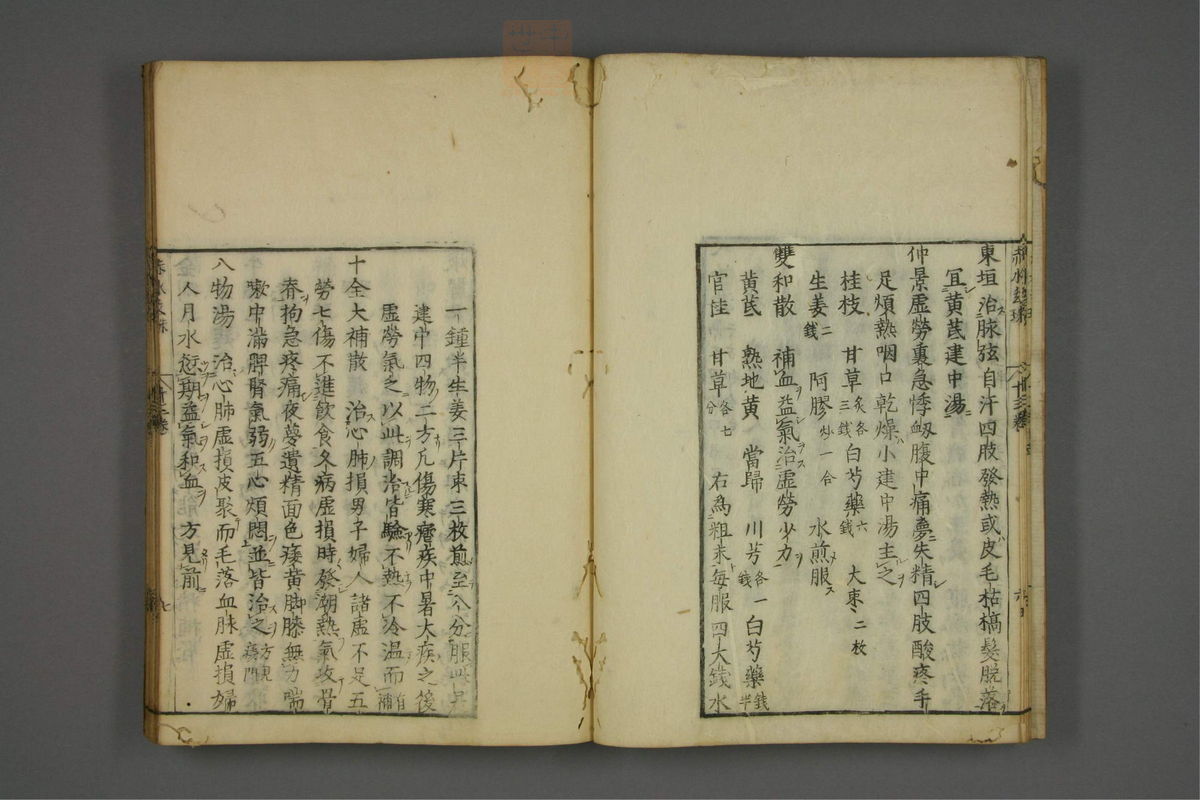 東垣治脉弦自汗四肢發熱或皮毛枯槁髮脱落
宜黄芪建中湯
仲景虛勞裏急悸衂腹中痛夢失精四肢酸疼手
足煩熱咽口乾燥小建中湯主之
桂枝 甘草炙各三錢 白芍藥六錢 大棗二枚
生姜二錢 阿膠炒一合 水煎服
雙和散 補血益氣治虛勞少力
黄芪 熟地黄 當歸 川芎各一錢 白芍藥錢半
官桂 甘草各七分 右為粗末每服四大錢水
一鍾半生姜三片棗三枚煎至八分服此是
建中四物二方凡傷寒瘡疾中暑大疾之後
虛勞氣乏以此調治皆驗不熱不冷温而自補
十全大補散 治心肺損男子婦人諸虛不足五
勞七傷不進飲食久病虛損時發潮熱氣攻骨
脊拘急疼痛夜夢遺精面色痿黄脚膝無力喘
嗽中滿脾腎氣弱五心煩悶並皆治之方見
八物湯 治心肺虛損皮聚而毛落血脉虛損婦
人月水愆期益氣和血 方見前